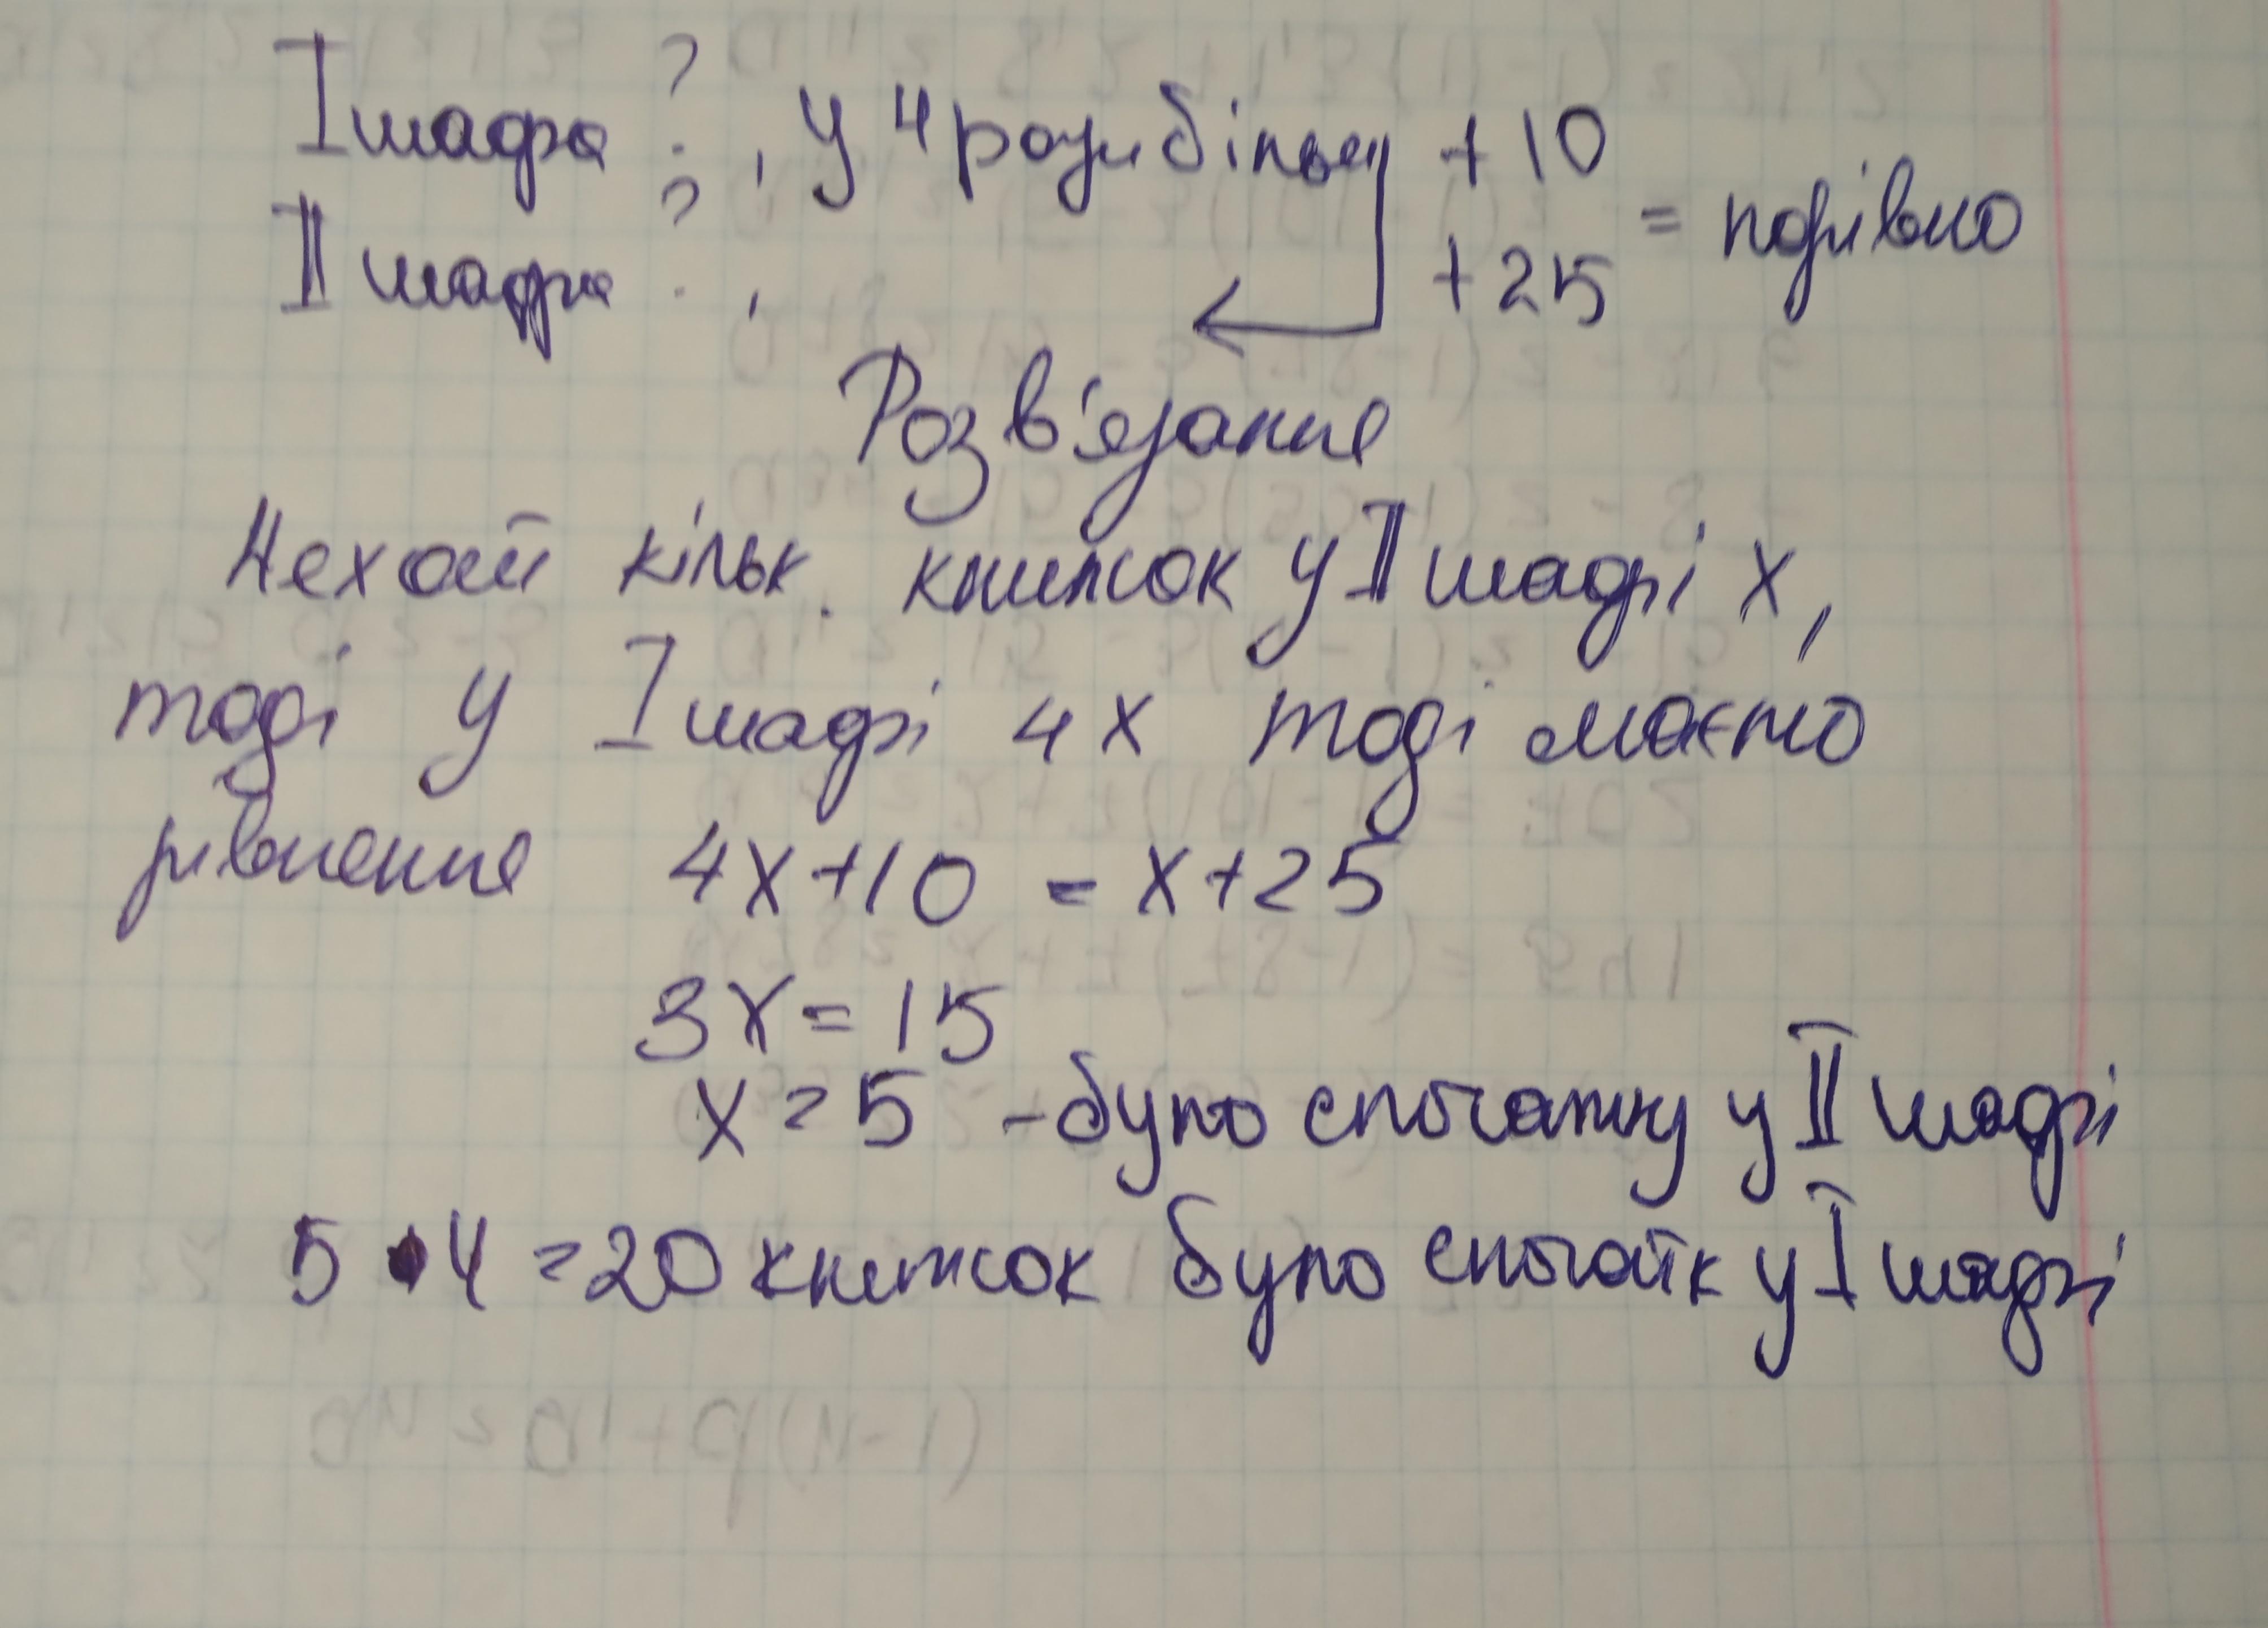 I шафа ?, у 4 рази більш + 10
II шафа ?, + 25 = порівно
Розв'язання
Нехай кільк. книжок у II шафі x,
тоді у I шафі 4x тоді маємо
рівнення 4x+10 = x+25
3x = 15
x = 5 - було спочатку у II шафі
5 • 4 = 20 книжок було у I шафі